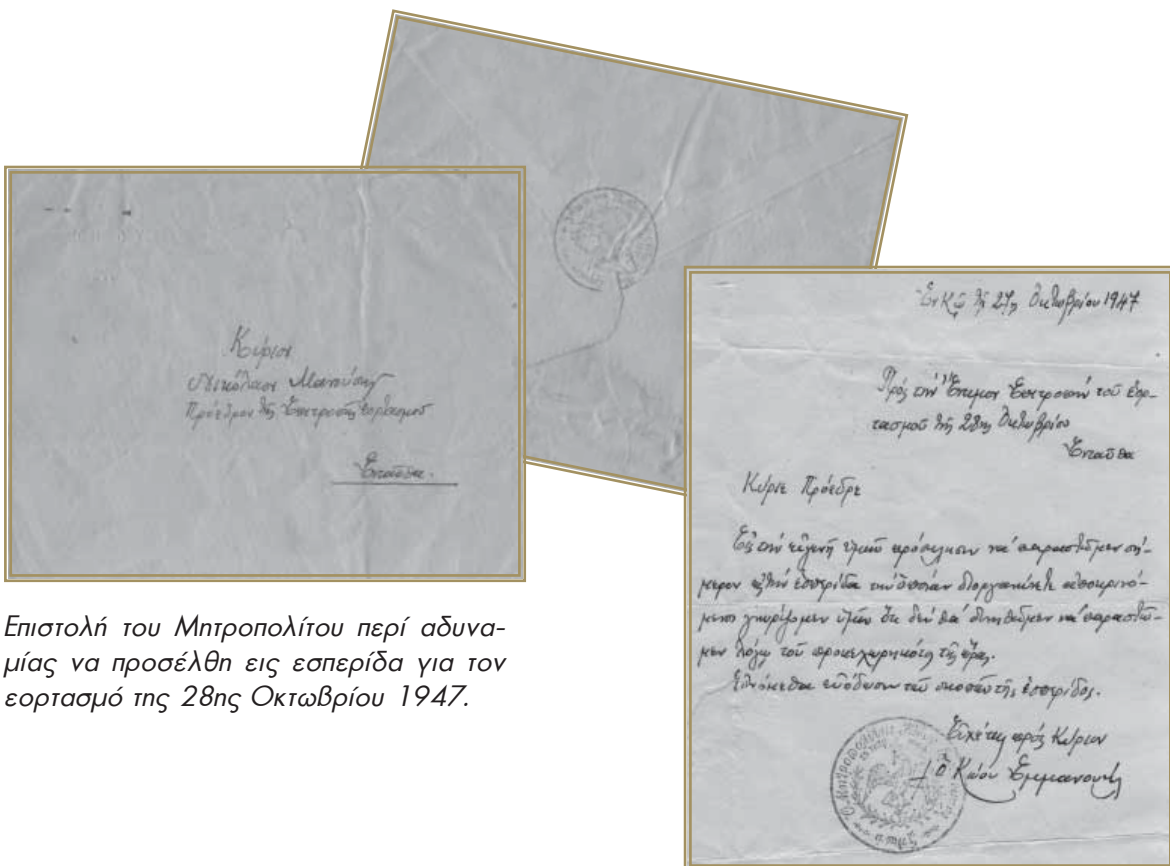 Κύριον
Νικόλαον
Πρόεδρον τῆς Ἐπιτροπῆς ἑορτασμοῦ
Ἐνταῦθα.
Ἐν Κῷ τῇ 27ῃ Ὀκτωβρίου 1947
Πρὸς τὴν Ἔντιμον Ἐπιτροπὴν τοῦ ἑορ-
τασμοῦ τῆς 28ης Ὀκτωβρίου
Ἐνταῦθα
Κύριε Πρόεδρε
Εἰς τὴν εὐγενῆ ὑμῶν πρόσκλησιν νὰ παραστῶμεν σή-
μερον εἰς τὴν ἑσπερίδα τὴν ὁποίαν διοργανώνετε ἀποκρινό-
μενοι γνωρίζομεν ὑμῖν ὅτι δὲν θὰ δυνηθῶμεν νὰ παραστῶ-
μεν λόγῳ τοῦ προκεχωρηκότος τῆς ὥρας.
εὐόδωσιν τοῦ σκοποῦ τῆς ἑσπερίδος.
Εὐχέτης πρὸς Κύριον
† ὁ Κώου Ἐμμανουήλ
Επιστολή του Μητροπολίτου περί αδυνα-
μίας να προσέλθη εις εσπερίδα για τον
εορτασμό της 28ης Οκτωβρίου 1947.